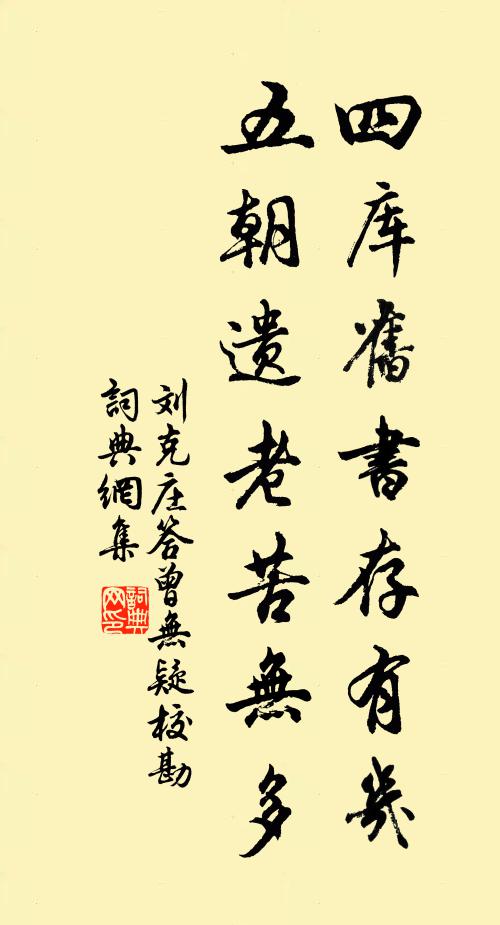 四库舊書存有幾
五朝遗老苦無多
刘克庄答曾無疑校勘
詞典網集
詞典网印